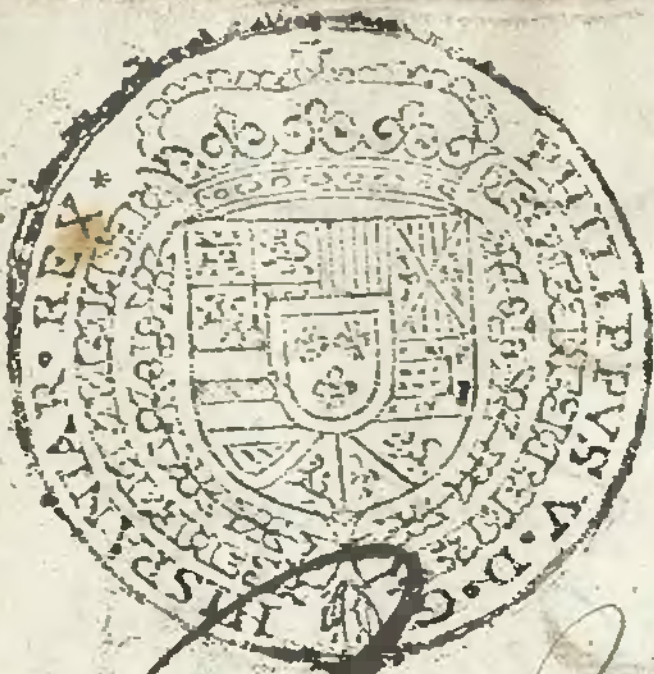 PHILIPPVS·V·D·G·HISPANIAR·REX*